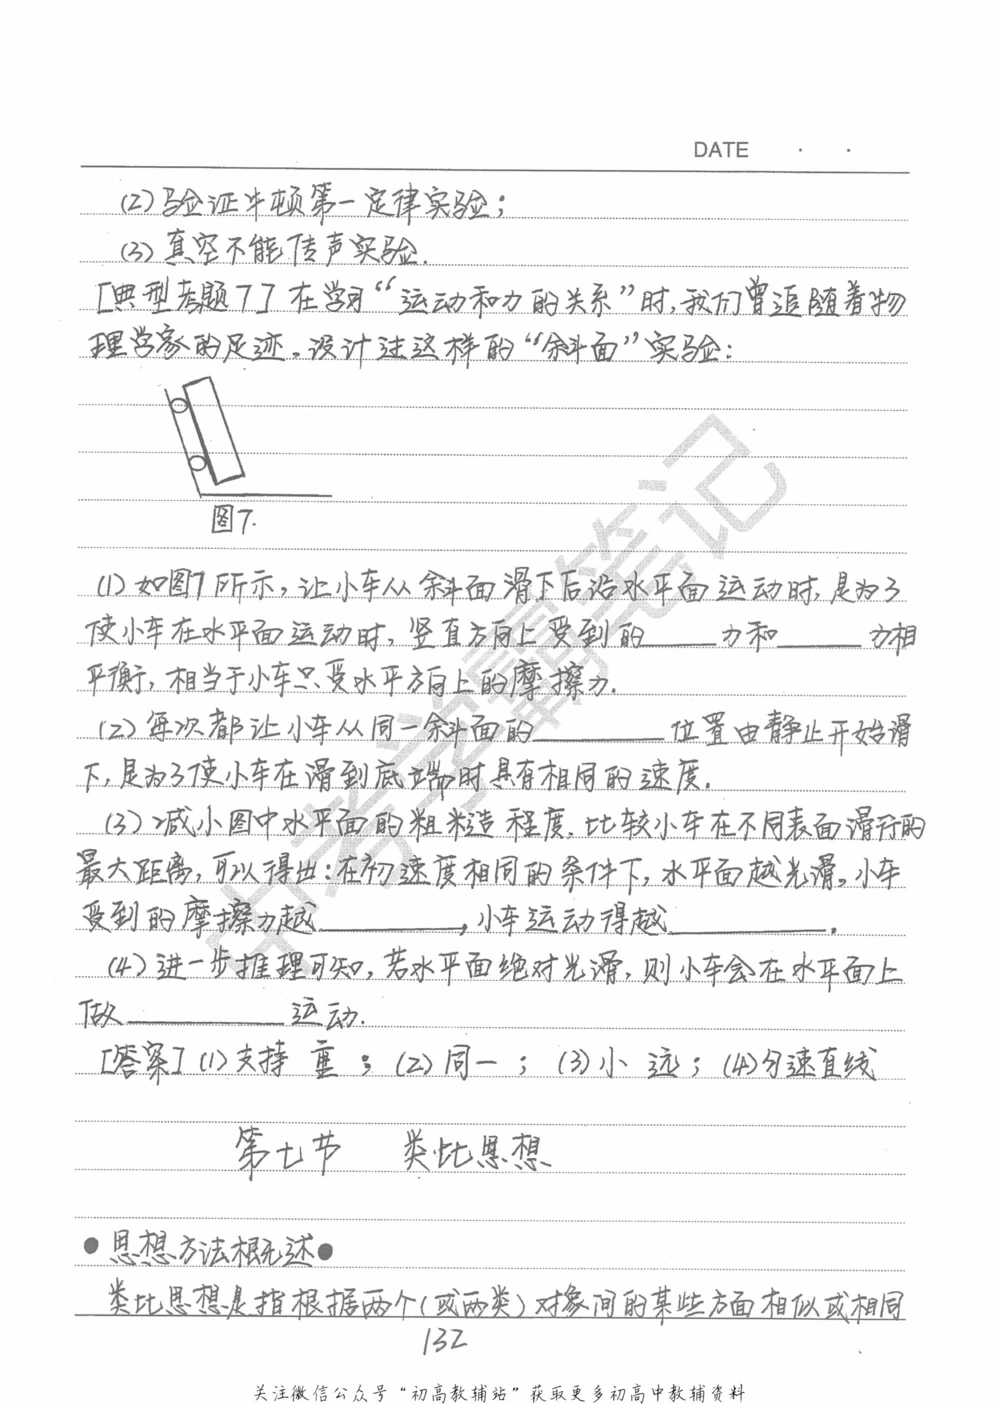 DATE · ·
(2)验证牛顿第一定律实验;
(3)真空不能传声实验.
[典型考题7]在学习“运动和力的关系”时,我们曾追随着物
理学家的足迹。设计过这样的“斜面”实验:
图7.
(1)如图7所示,让小车从斜面滑下后沿水平面运动时,是为了
使小车在水平面运动时,竖直方向上受到的____力和____力相
平衡,相当于小车只受水平方向上的摩擦力.
(2)每次都让小车从同一斜面的______位置由静止开始滑
下,是为了使小车在滑到底端时具有相同的速度.
(3)减小图中水平面的粗糙程度.比较小车在不同表面滑行的
最大距离,可以得出:在初速度相同的条件下,水平面越光滑。小车
受到的摩擦力越______,小车运动得越______.
(4)进一步推理可知,若水平面绝对光滑,则小车会在水平面上
做______运动.
[答案](1)支持 重;(2)同一;(3)小 远;(4)匀速直线
第七节 类比思想
●思想方法概述●
类比思想是指根据两个(或两类)对象间的某些方面相似或相同
132
关注微信公众号“初高教辅站”获取更多初高中教辅资料
中考学霸笔记